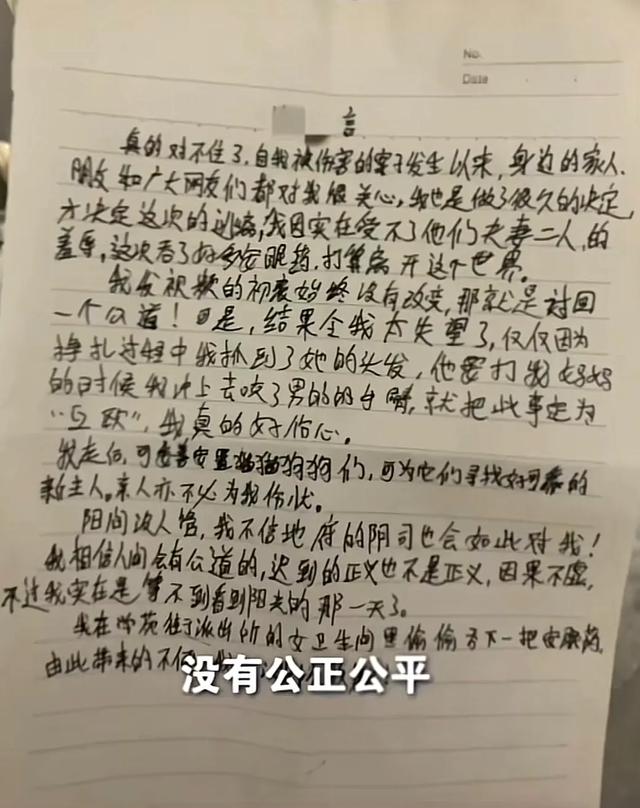 No.
Date
言
真的对不住了，自我被伤害的案子发生以来，身边的家人、
朋友和广大网友们都对我很关心，我也是做了很久的决定，
才决定这次的逃离，我因实在受不了他们夫妻二人的
羞辱，这次吞了好多安眠药，打算离开这个世界。
我发视频的初衷始终没有改变，那就是讨回
一个公道！可是，结果令我太失望了，仅仅因为
挣扎过程中我抓到了她的头发，他要打我妈妈
的时候我冲上去咬了男的的手臂，就把此事定为
“互殴”，我真的好伤心。
我走后，可 安置猫猫狗狗们，可为它们寻找好可靠的
新主人。亲人亦不必为我伤忧。
阳间没人管，我不信地府的阴司也会如此对我！
我相信人间会有公道的，迟到的正义也不是正义，因果不虚，
不过我实在是等不到看到阳光的那一天了。
我在学苑街派出所的女卫生间里偷偷吞下一把安眠药，
由此带来的不
没有公正公平